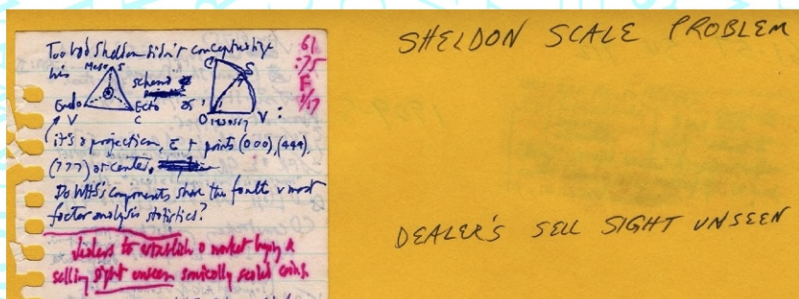 Too bad Sheldon didn't conceptualize
his
Meso S
schema
Endo
V
Ecto
C
C
S
O 1234567 V :
61
:75
F
1/17
it's a projection, c̄ r points (000), (444),
(777) at center.
Do WHS's components share the fault v most
factor analysis statistics?
dealers to establish a market buying &
selling sight unseen sonically sealed coins.
SHELDON SCALE PROBLEM
DEALER'S SELL SIGHT UNSEEN